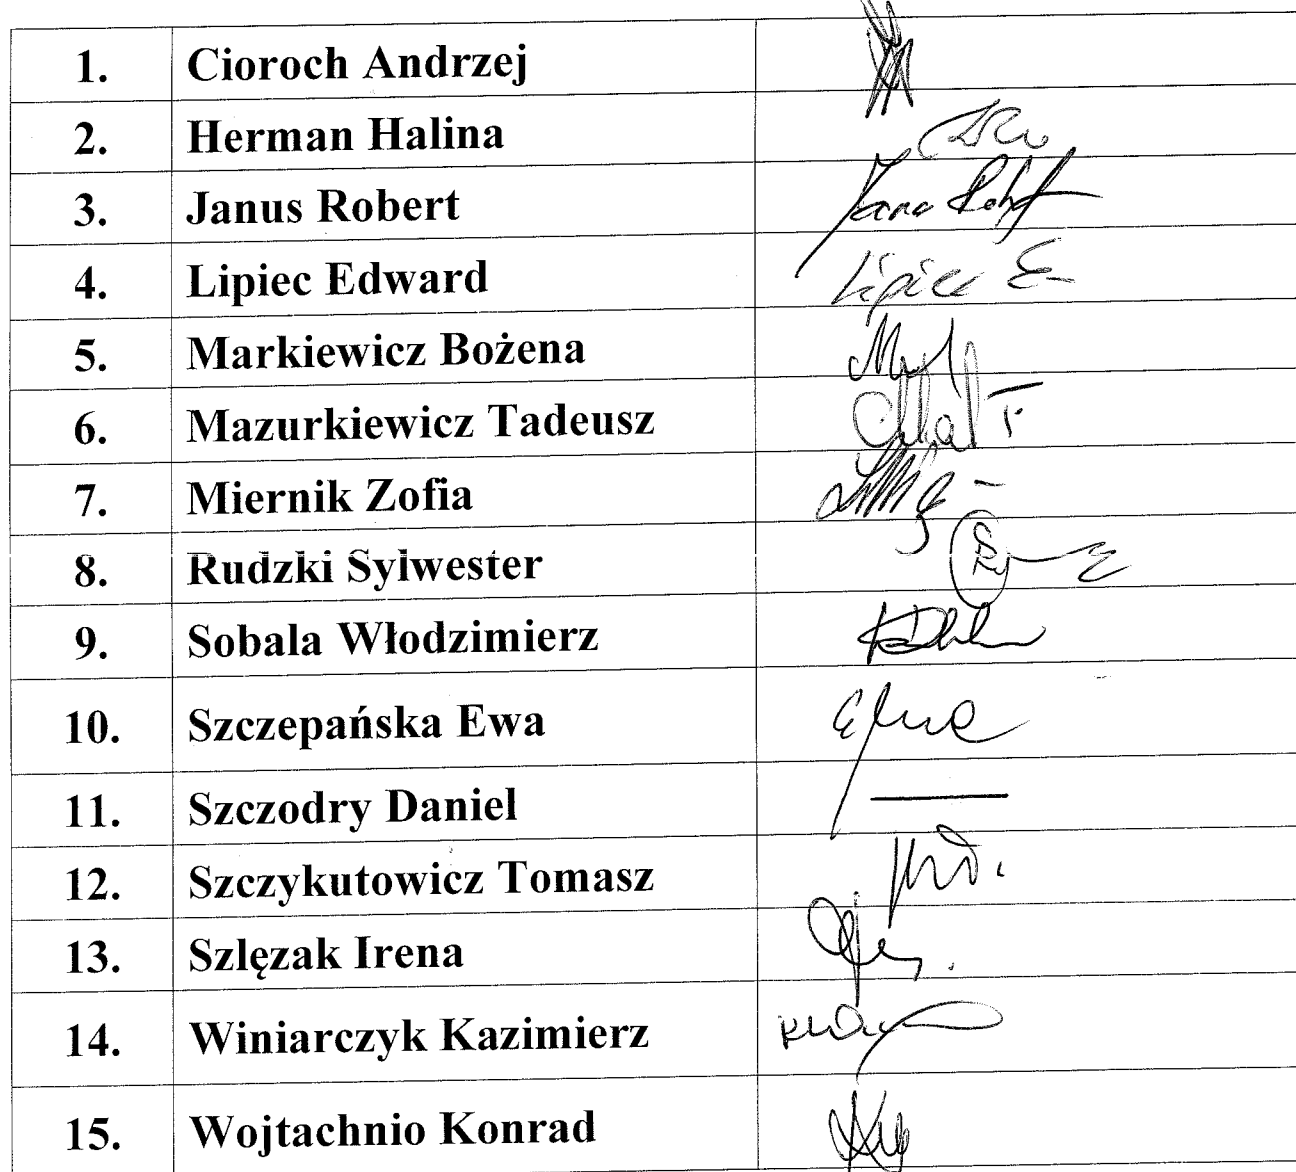 1. Cioroch Andrzej
2. Herman Halina
3. Janus Robert
4. Lipiec Edward Lipiec E
5. Markiewicz Bożena
6. Mazurkiewicz Tadeusz
7. Miernik Zofia
8. Rudzki Sylwester
9. Sobala Włodzimierz
10. Szczepańska Ewa
11. Szczodry Daniel
12. Szczykutowicz Tomasz
13. Szlęzak Irena
14. Winiarczyk Kazimierz
15. Wojtachnio Konrad